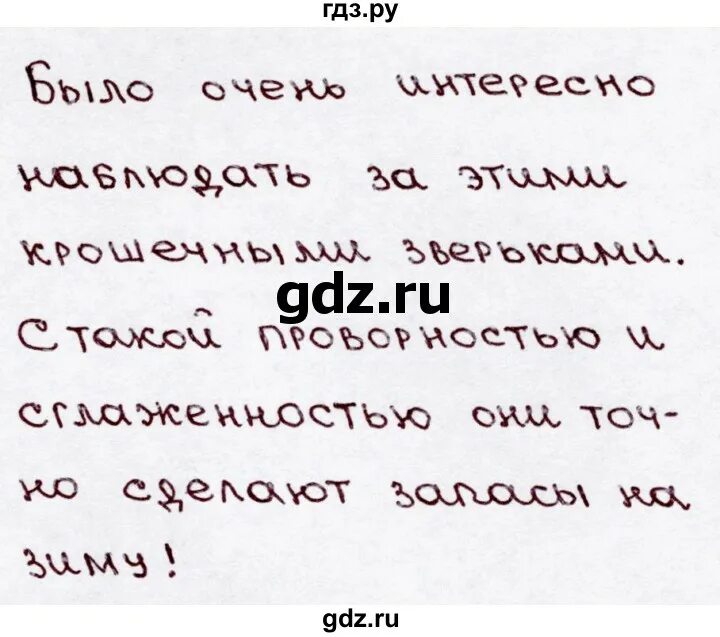 гдз.ру
Было очень интересно
наблюдать за этими
крошечными зверьками.
gdz.ru
С такой проворностью и
сглаженностью они точ-
но сделают запасы на
зиму!
gdz.ru